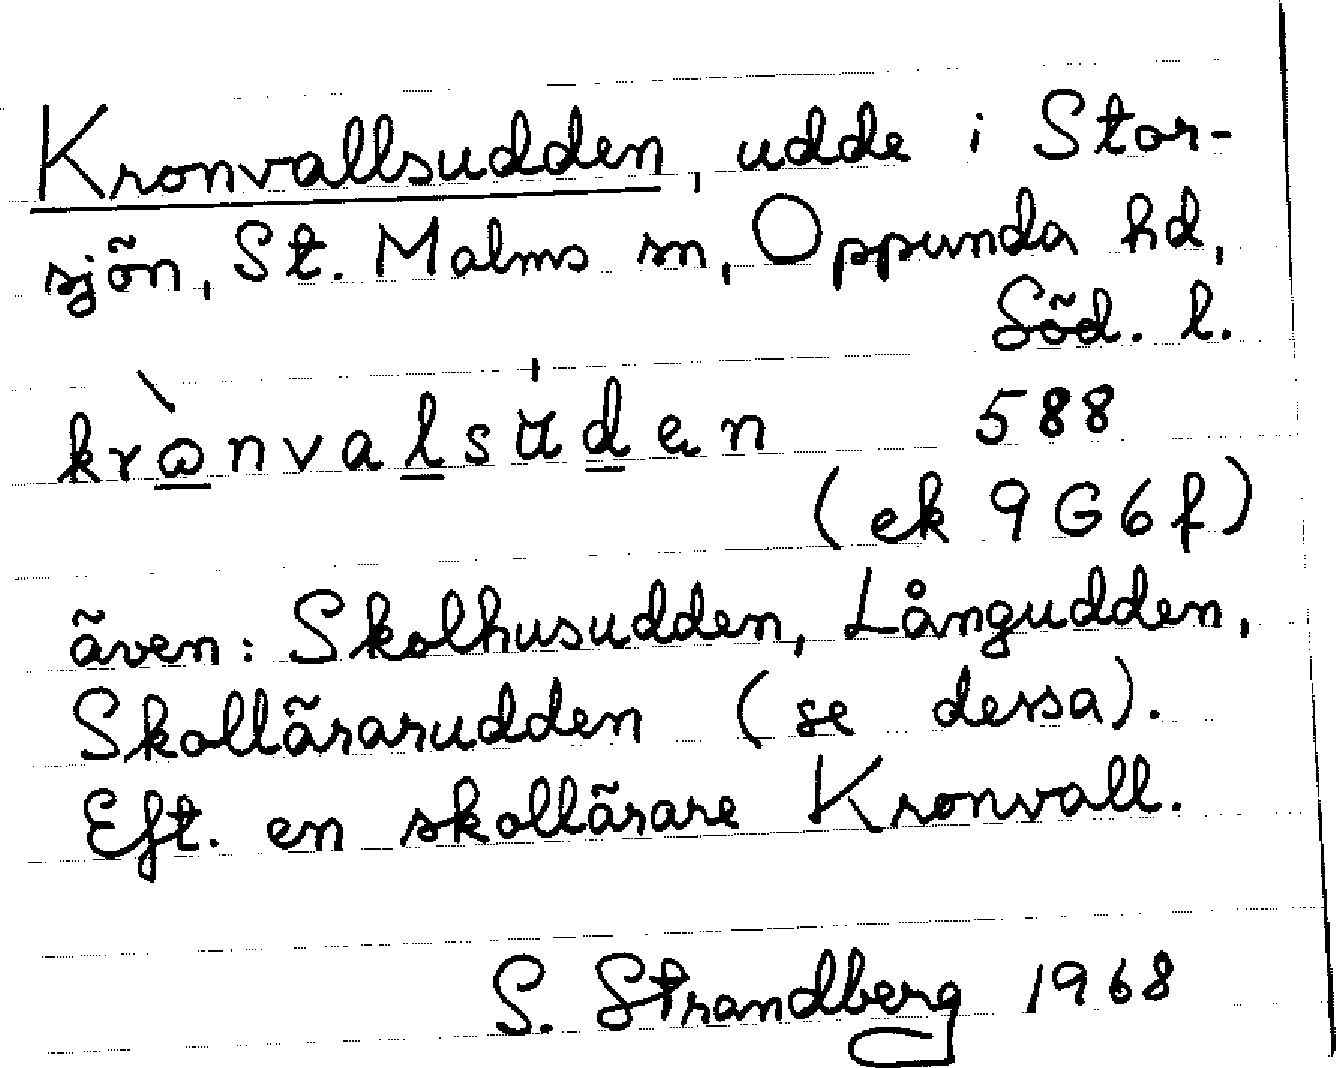 Kronvallsudden, udde i Stor-
sjön, St. Malms sn, Oppunda hd,
Söd. l.
krònvalsuden 588
(ek 9G6f)
även: Skolhusudden, Långudden,
Skollärarudden (se dessa).
Eft. en skollärare Kronvall.
S. Strandberg 1968